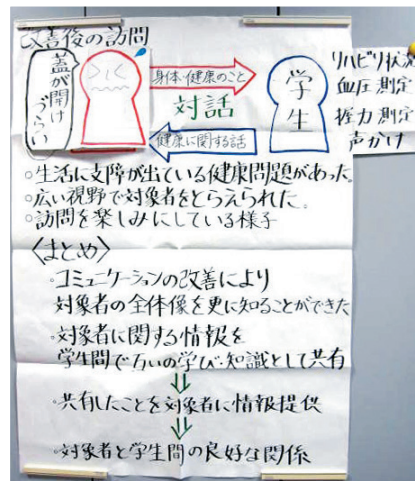 改善後の訪問
蓋が開け
づらい
身体・健康のこと
対話
健康に関する話
学生
リハビリ状況
血圧測定
握力測定
声かけ
○生活に支障が出ている健康問題があった。
○広い視野で対象者をとらえられた。
○訪問を楽しみにしている様子
〈まとめ〉
・コミュニケーションの改善により
対象者の全体像を更に知ることができた
・対象者に関する情報を
学生間で互いの学び・知識として共有
・共有したことを対象者に情報提供
・対象者と学生間の良好な関係